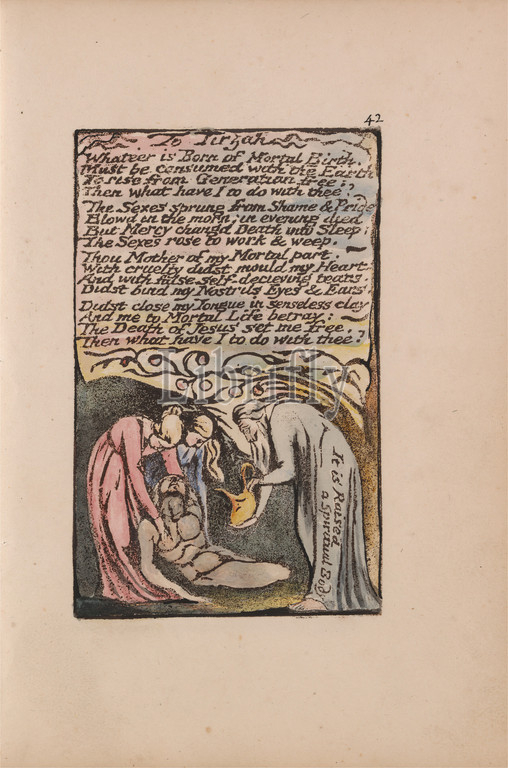 42
To Tirzah
Whateer is Born of Mortal Birth,
Must be consumed with the Earth
To rise from Generation free;
Then what have I to do with thee?
The Sexes sprung from Shame & Pride
Blowd in the morn; in evening died
But Mercy changd Death into Sleep;
The Sexes rose to work & weep.
Thou Mother of my Mortal part.
With cruelty didst mould my Heart.
And with false self-decieving tears.
Didst bind my Nostrils Eyes & Ears.
Didst close my Tongue in senseless clay
And me to Mortal Life betray:
The Death of Jesus set me free,
Then what have I to do with thee?
Librifly
It is Raised
a Spiritual Body